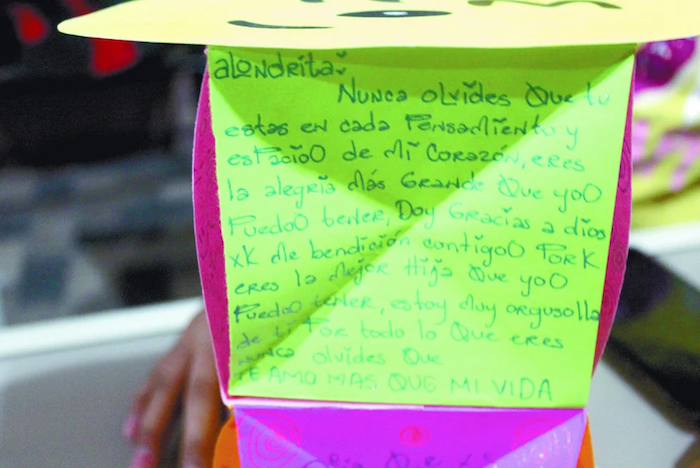 alondrita:
Nunca olvides que tu
estas en cada Pensamiento y
esPacioO de Mi Corazón, eres
la alegria Más Grande Que yoO
PuedoO tener, Doy Gracias a dios
xK Me bendición contigoO PorK
eres la Mejor Hija Que yoO
PuedoO tener, estoy Muy orgusolla
de ti Por todo lo Que eres
nunca olvides Que
TE AMO MAS QUE MI VIDA